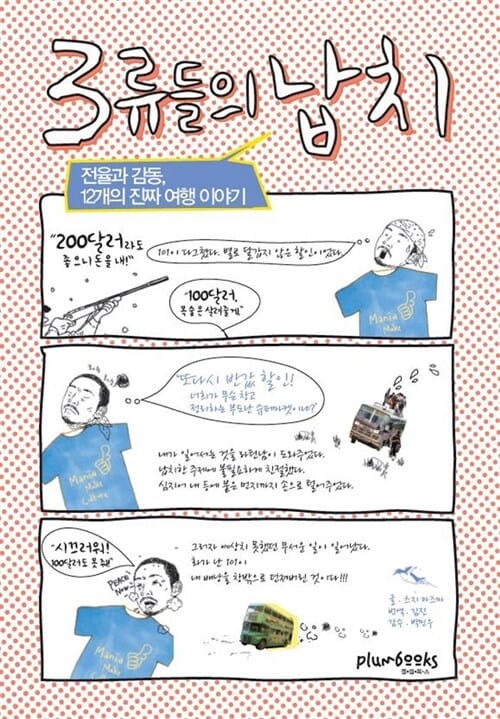 3류들의 납치
전율과 감동,
12개의 진짜 여행 이야기
"200달러라도
좋으니 돈을 내!"
101이 다그쳤다. 별로 달갑지 않은 할인이었다.
"100달러,
목숨은 살려줄게"
Mania
Make
"또다시 반값 할인!
너희가 무슨 창고
정리하는 부도난 슈퍼마켓이냐?"
Mania
Make
Culture
내가 일어서는 것을 라틴남이 도와주었다.
납치한 주제에 불필요하게 친절했다.
심지어 내 등에 붙은 먼지까지 손으로 털어주었다.
"시끄러워!
100달러도 못 줘"
PEACE
Now
Mania
Make
그러자 예상치 못했던 무서운 일이 일어났다.
화가 난 101이
내 배낭을 창밖으로 던져버린 것이다!!!
글. 츠지 카즈마
번역. 김진
감수. 박민우
plumbooks
플럼북스